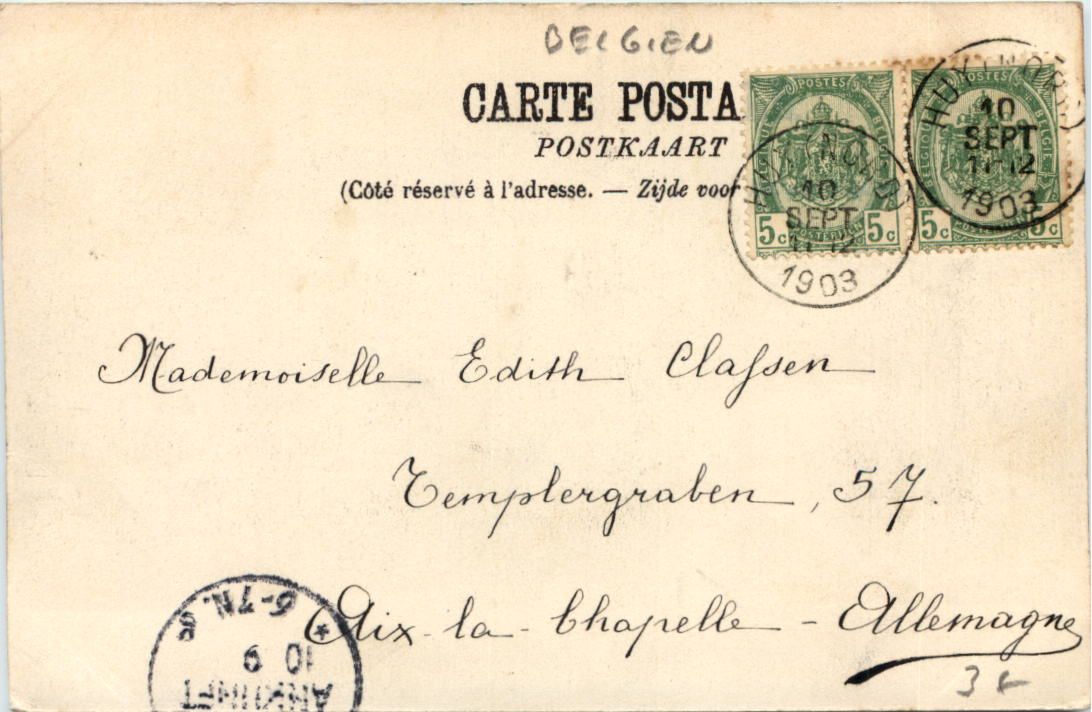 BELGIEN
CARTE POSTA
POSTKAART
(Côté réservé à l'adresse. — Zijde voor
POSTES
5c 5c
POSTES
5c 5c
10
SEPT
11-12
1903
HUY (NORD)
10
SEPT
11-12
1903
Mademoiselle Edith Claſsen
Templergraben, 57.
Aix-la-Chapelle - Allemagne
6-7N.
10 9
ANKUNFT